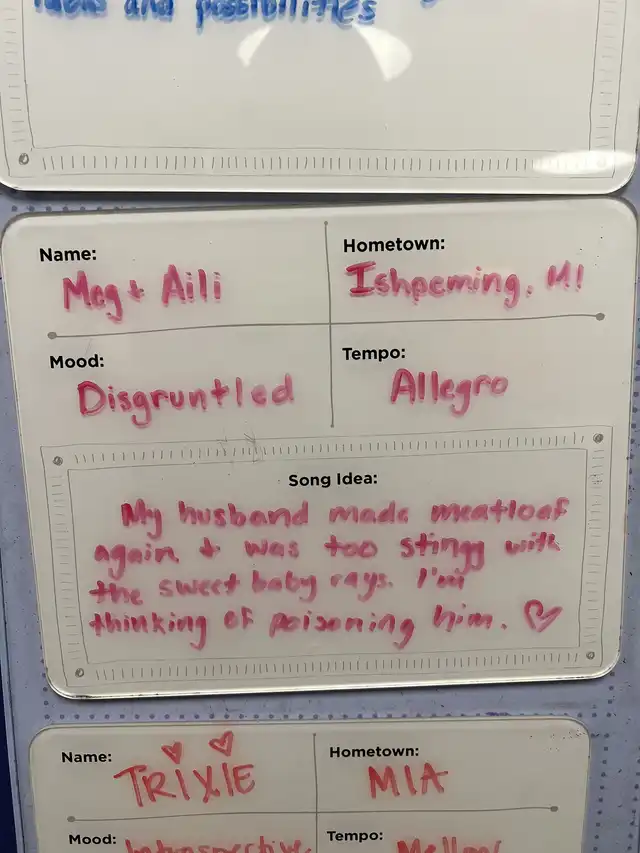 ideas and possibilities
Name:
Meg + Aili
Hometown:
Ishpeming, MI
Mood:
Disgruntled
Tempo:
Allegro
Song Idea:
My husband made meatloaf
again & was too stingy with
the sweet baby rays. I'm
thinking of poisoning him. ♡
Name:
TRIXIE
Hometown:
MIA
Mood:
Introspective
Tempo:
Mellow